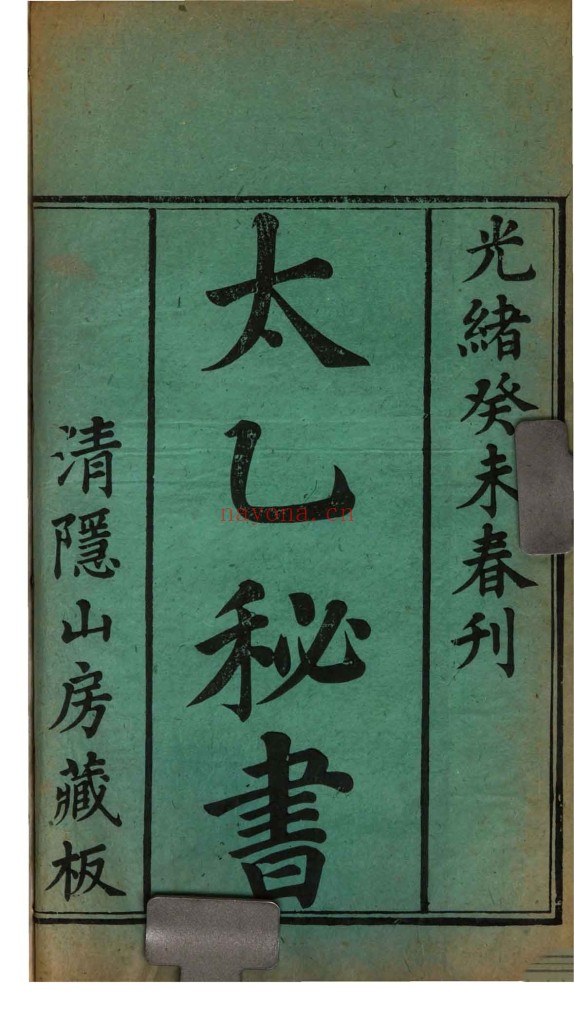 光緒癸未春刊
太乙秘書
清隱山房藏板
nayona.cn